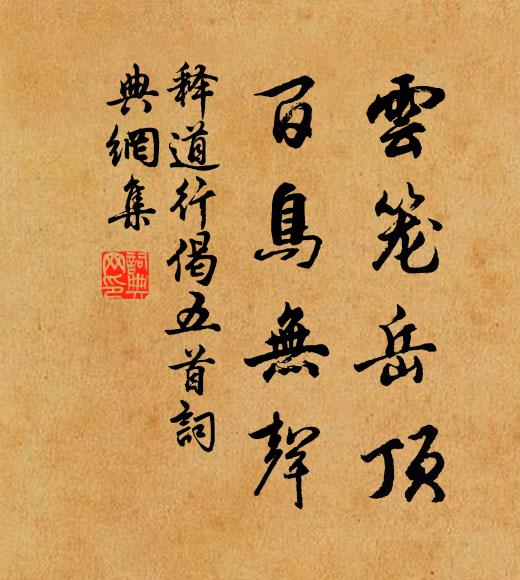 雲笼岳頂
百鳥無聲
释道行偈五首詞
典網集
詞典
网印